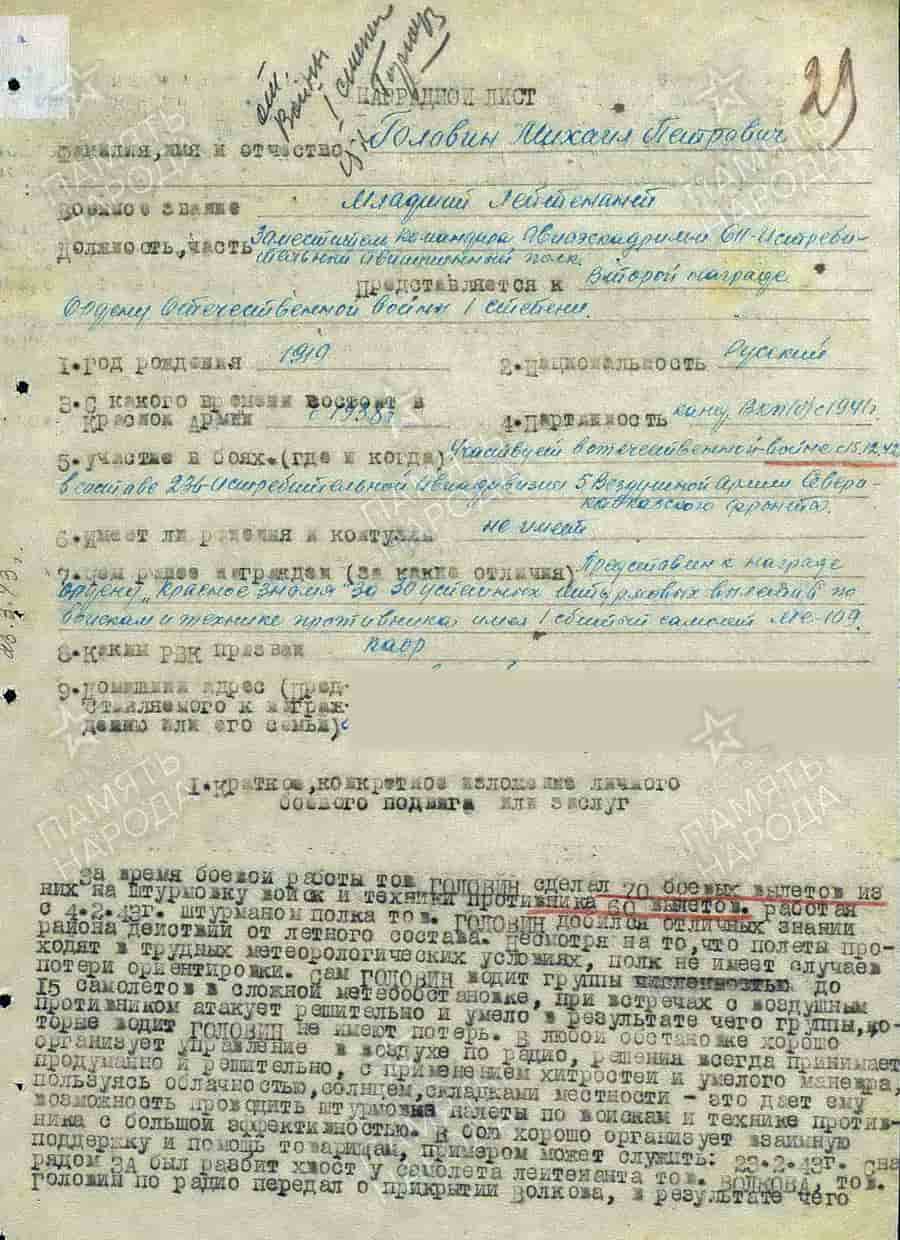 от.
Войны
1 степени
29
НАГРАДНОЙ ЛИСТ
Фамилия, имя и отчество Головин Михаил Петрович
Военное звание Младший Лейтенант
Должность, часть Заместителем командира Авиаэскадрильи 611-Истреби-
тельный авиационный полк.
Представляется к Второй награде
Ордену Отечественной войны 1 степени.
1. Год рождения 1919
2. Национальность Русский
3. С какого времени состоит в
Красной Армии с 1938г
4. Партийность канд. ВКП(б) с 1941г.
5. Участие в боях. (где и когда) Участвует в отечественной войне с 15.12.42
в составе 236 Истребительной Авиадивизии 5 Воздушной Армии Северо-
кавказского фронта.
6. Имеет ли ранения и контузии не имеет
7. Чем ранее награжден (за какие отличия) Представлен к награде
ордену "Красное Знамя" за 30 успешных штурмовых вылетов по
войскам и технике противника, имея 1 сбитый самолет Ме-109.
8. Каким РВК призван кадр
9. Домашний адрес (Пред-
ставляемого к награж-
дению или его семьи)
1. Краткое, конкретное изложение личного
боевого подвига или заслуг
За время боевой работы тов ГОЛОВИН сделал 70 боевых вылетов из
них на штурмовку войск и техники противника 60 вылетов. Работая
с 4.2.43г. штурманом полка тов. ГОЛОВИН добился отличных знаний
района действий от летного состава. Несмотря на то, что полеты про-
ходят в трудных метеорологических условиях, полк не имеет случаев
потери ориентировки. Сам ГОЛОВИН водит группы численностью до
15 самолетов в сложной метеобстановке, при встречах с воздушным
противником атакует решительно и умело в результате чего группы, ко-
торые водит ГОЛОВИН не имеют потерь. В любой обстановке хорошо
организует управление в воздухе по радио, решения всегда принимает
продуманно и решительно, с применением хитростей и умелого маневра,
пользуясь облачностью, солнцем, складками местности - это дает ему
возможность проводить штурмовые налеты по войскам и технике против-
ника с большой эффективностью. В бою хорошо организует взаимную
поддержку и помощь товарищам, примером может служить: 23.2.43г. Сна
рядом ЗА был разбит хвост у самолета лейтенанта тов. ВОЛКОВА, тов.
Головин по радио передал о прикрытии Волкова, в результате чего